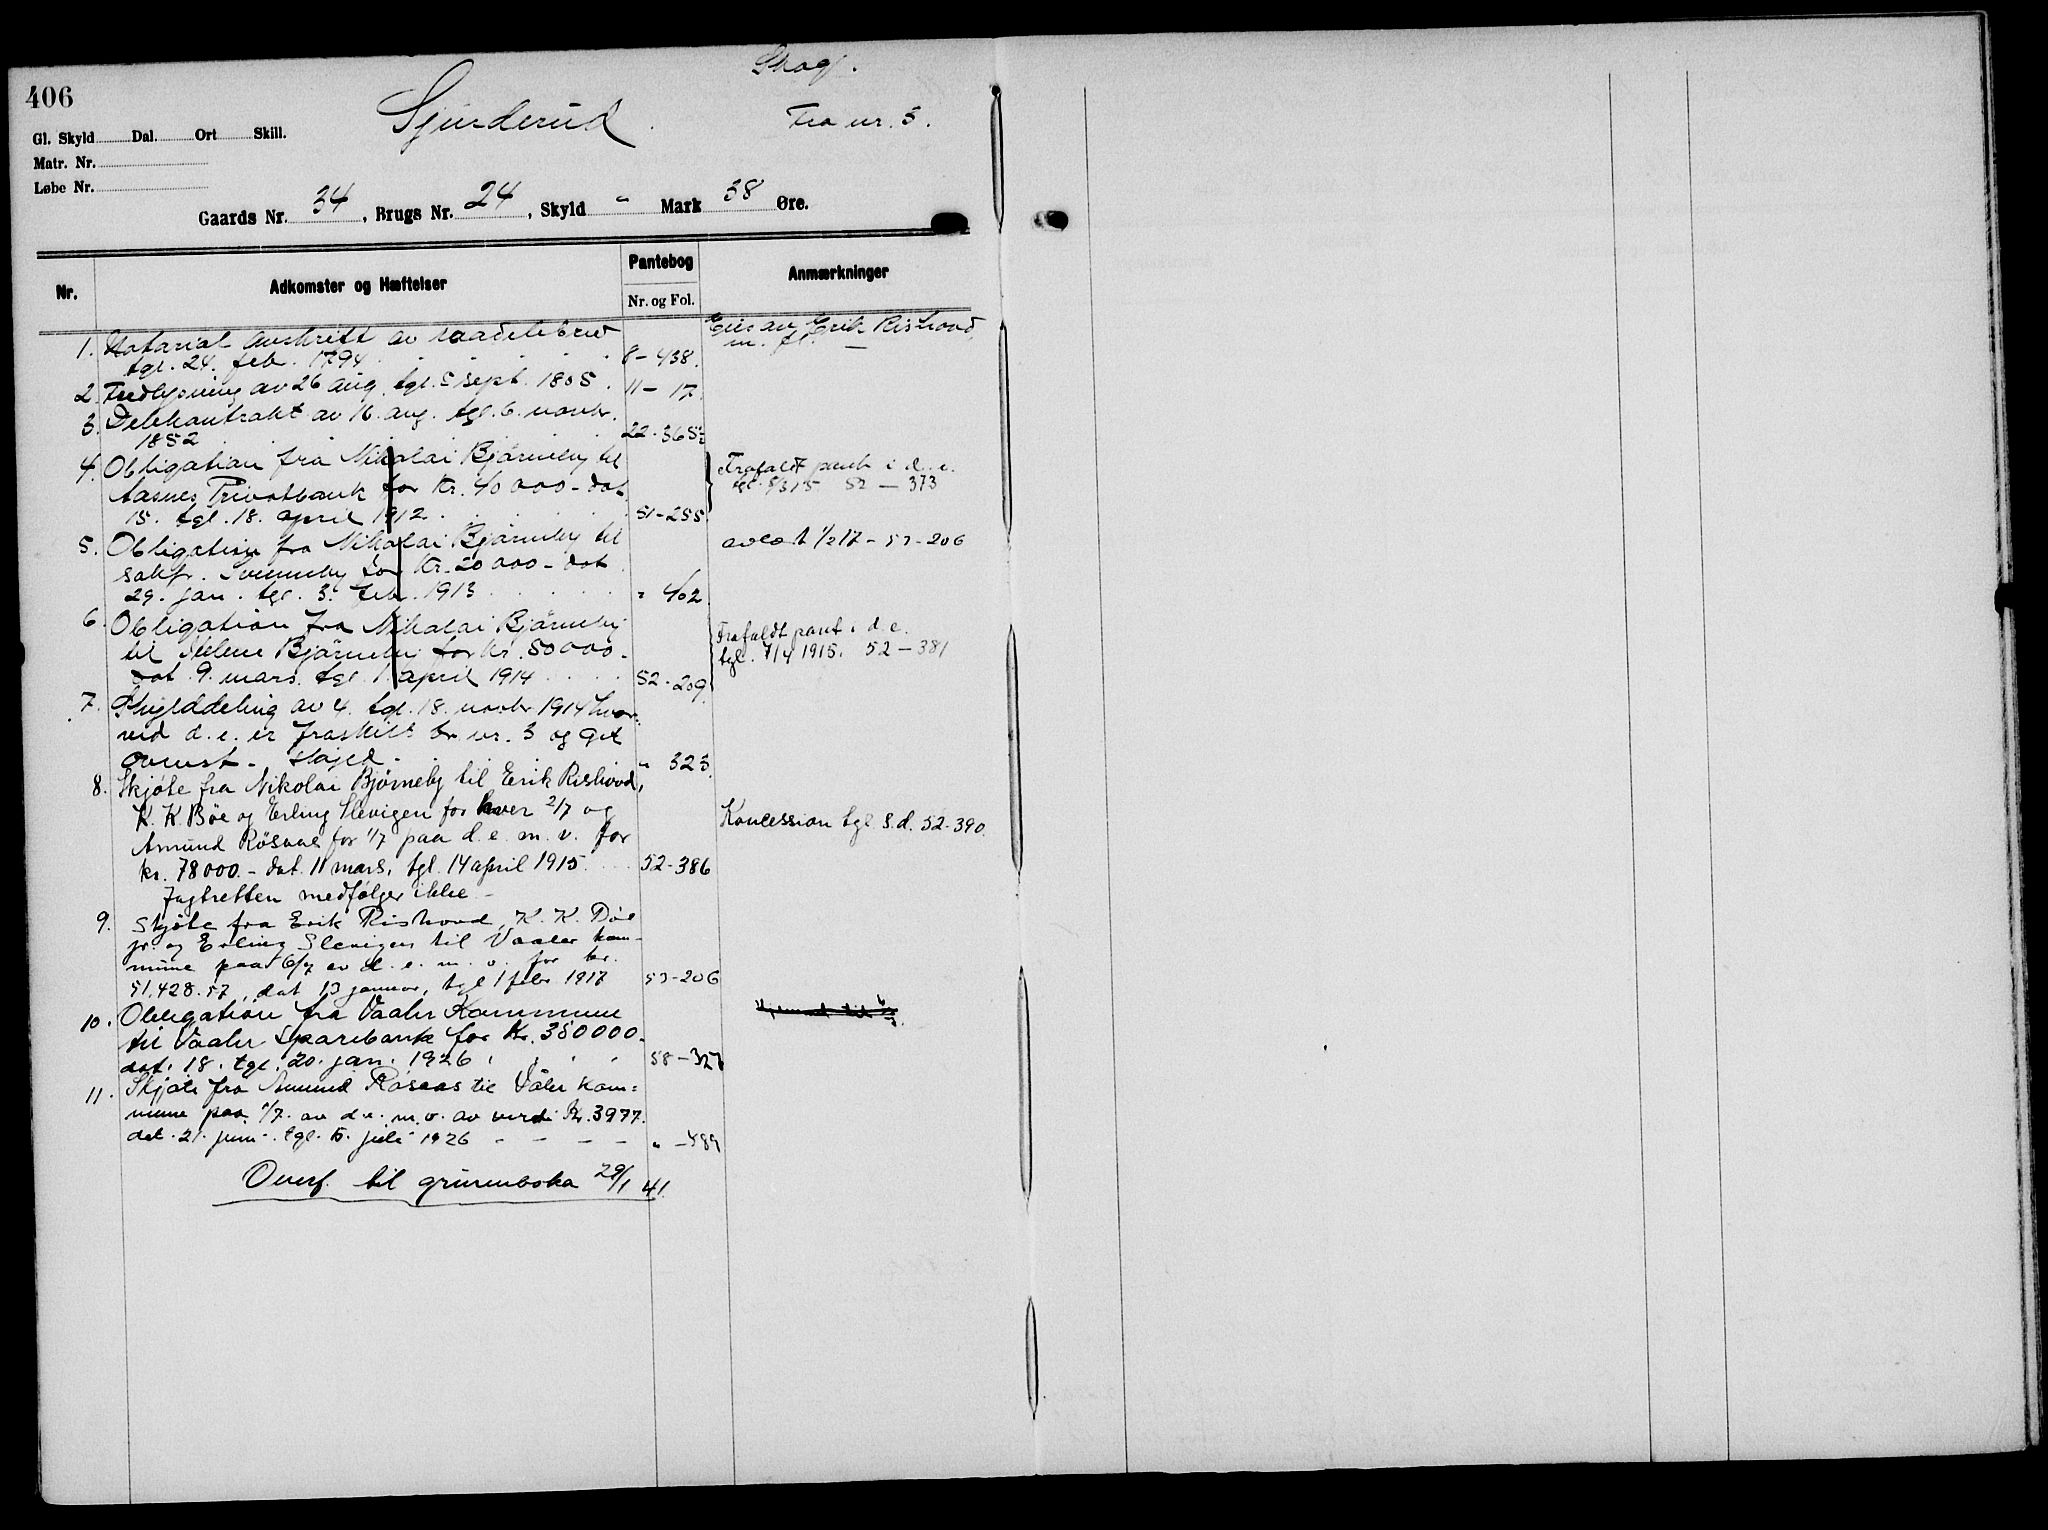 406
Skog.
Sjurderud.
Fra nr. 3.
Gl. Skyld Dal. Ort Skill.
Matr. Nr.
Løbe Nr.
Gaards Nr. 34, Brugs Nr. 24, Skyld - Mark 38 Øre.
Nr. Adkomster og Hæftelser Pantebog Anmærkninger
Nr. og Fol.
1. Notarial avskrift av maadelebrev Eies av Erik Rishovd
tgl. 24. feb. 1794 8-438. m. fl.
2. Fredlysning av 26 aug. tgl. 5 sept. 1805. 11-17.
3. Delekontrakt av 16. aug. tgl. 6. novbr.
1852 22-365
4. Obligation fra Nikolai Bjørneby til Frafaldt pant i d. e.
Aasnes Privatbank for Kr. 40 000 - dat. tgl. 8/3 15 52 - 373
15. tgl. 18. april 1912. 51-255
5. Obligation fra Nikolai Bjørneby til avløst 1/2 17 - 53-206
sakfr. Svenneby for Kr. 20 000 - dat.
29. jan. tgl. 3. feb. 1913 " 402
6. Obligation fra Nikolai Bjørneby Frafaldt pant i d. e.
til Helene Bjørneby for Kr. 50 000 - tgl. 7/4 1915. 52 - 381
dat. 9. mars. tgl. 1. april 1914 52-209
7. Skylddeling av 4. tgl. 18. novbr 1914 hvor-
ved d. e. er fraskilt br. nr. 3 og git
" 323.
8. Skjøte fra Nikolai Bjørneby til Erik Rishovd,
K. K. Böe og Erling Slevigen for hver 2/7 og Koncession tgl. s. d. 52-390.
Amund Røsaas for 1/7 paa d. e. m. v. for
kr. 78 000. - dat. 11 mars, tgl. 14 april 1915. 52-386
Jagtretten medfølger ikke. -
9. Skjøte fra Erik Rishovd, K. K. Böe
jr. og Erling Slevigen til Vaaler kom-
mune paa 6/7 av d. e. m. v. for kr.
51.428.57, dat 13 januar, tgl 1 febr 1917 53-206
10. Obligation fra Vaaler Kommune
til Vaaler Sparebank for Kr. 350 000.
dat. 18. tgl. 20. jan. 1926 58-327
11. Skjøte fra Amund Røsaas til Våler kom=
mune paa 1/7. av d. e. m. v. av verdi Kr. 3977.
dat. 21. juni - tgl. 5. juli 1926 - - - - " - 489
Overf. til grunnboka 29/1 41.